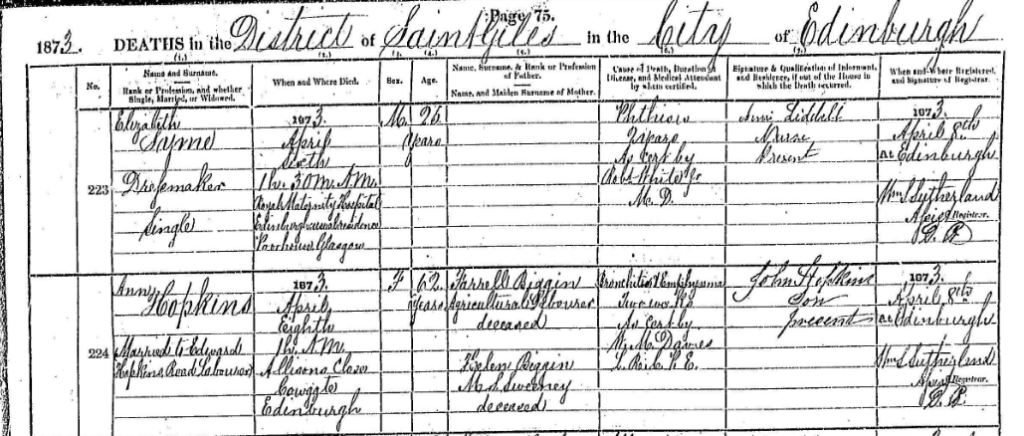 Page 75.
1873. DEATHS in the District of Saint Giles in the City of Edinburgh
(1.) (2.) (3.) (4.) (5.) (6.) (7.)
No.
Name and Surname.
Rank or Profession, and whether
Single, Married, or Widowed.
When and Where Died.
Sex.
Age.
Name, Surname, & Rank or Profession
of Father.
Name, and Maiden Surname of Mother.
Cause of Death, Duration of
Disease, and Medical Attendant
by whom certified.
Signature & Qualification of Informant,
and Residence, if out of the House in
which the Death occurred.
When and Where Registered,
and Signature of Registrar.
223
Elizabeth
Dressmaker
Single
1873.
April
Sixth
1h. 30 m. A.M.
Royal Maternity Hospital
Edinburgh usual residence
Poorhouse Glasgow
M.
26
years
Phthisis
2 years
As Cert by
Robt White
M. D.
Liddell
Nurse
Present
1873.
April 8th
at Edinburgh
Wm S Sutherland
Assist Registrar.
224
Ann
Hopkins
Married to Edward
Hopkins Road Labourer
1873.
April
Eighth
1h. A.M.
Allisons Close
Cowgate
Edinburgh
F
62
years
Farrell Biggin
Agricultural Labourer
deceased
Helen Biggin
M.S. Sweeney
deceased
Bronchitis & Emphysema
Two weeks
As Cert by
Davies
John Hopkins
Son
present
1873.
April 8th
at Edinburgh
Wm S Sutherland
Assist Registrar.